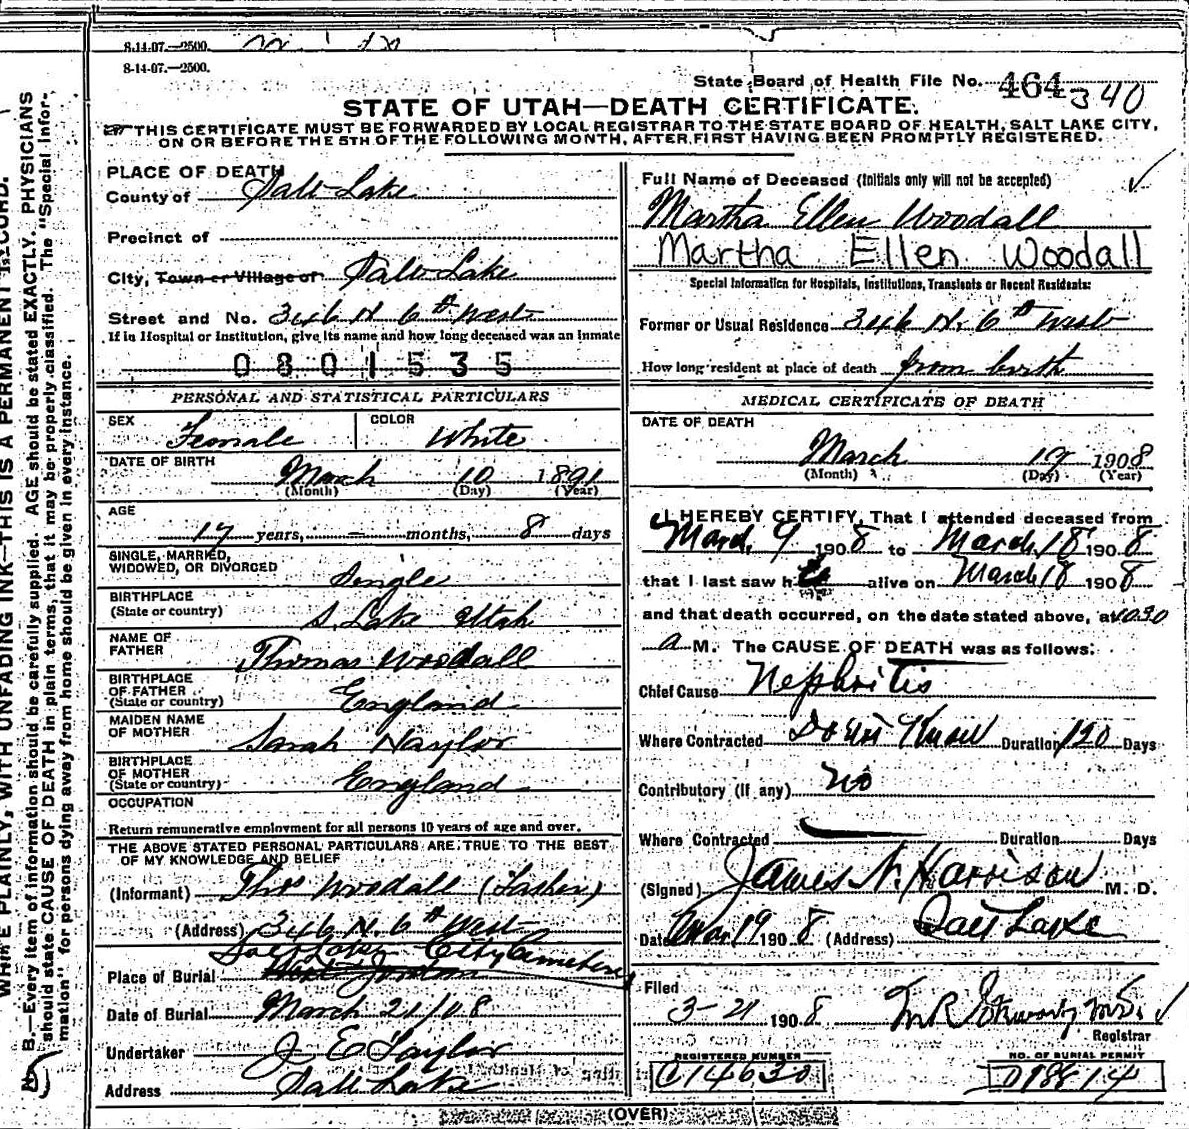 8-14-07.—2500.
8-14-07.—2500.
State Board of Health File No. 464 340
STATE OF UTAH—DEATH CERTIFICATE.
THIS CERTIFICATE MUST BE FORWARDED BY LOCAL REGISTRAR TO THE STATE BOARD OF HEALTH, SALT LAKE CITY,
ON OR BEFORE THE 5TH OF THE FOLLOWING MONTH, AFTER FIRST HAVING BEEN PROMPTLY REGISTERED.
PLACE OF DEATH
County of Salt Lake
Precinct of
City, Town or Village of Salt Lake
Street and No. 346 N 6th West
If in Hospital or Institution, give its name and how long deceased was an inmate
0801535
PERSONAL AND STATISTICAL PARTICULARS
SEX Female COLOR White
DATE OF BIRTH
March 10 1891
(Month) (Day) (Year)
AGE
17 years, — months, 8 days
SINGLE, MARRIED,
WIDOWED, OR DIVORCED Single
BIRTHPLACE
(State or country) S. Lake Utah
NAME OF
FATHER Thomas Woodall
BIRTHPLACE
OF FATHER
(State or country) England
MAIDEN NAME
OF MOTHER Sarah Naylor
BIRTHPLACE
OF MOTHER
(State or country) England
OCCUPATION
Return remunerative employment for all persons 10 years of age and over.
THE ABOVE STATED PERSONAL PARTICULARS ARE TRUE TO THE BEST
OF MY KNOWLEDGE AND BELIEF
(Informant) Thos Woodall (Father)
(Address) 346 N. 6th West
Salt Lake City Cemetery
Place of Burial West Jordan
Date of Burial March 21/08
Undertaker J E Taylor
Address Salt Lake
Full Name of Deceased (Initials only will not be accepted)
Martha Ellen Woodall
Martha Ellen Woodall
Special Information for Hospitals, Institutions, Transients or Recent Residents:
Former or Usual Residence 346 N. 6th West
How long resident at place of death from birth
MEDICAL CERTIFICATE OF DEATH
DATE OF DEATH
March 19 1908
(Month) (Day) (Year)
I HEREBY CERTIFY, That I attended deceased from
March 9 1908 to March 18 1908
that I last saw h alive on March 18 1908
and that death occurred, on the date stated above, at 10.30
a M. The CAUSE OF DEATH was as follows:
Chief Cause Nephritis
Where Contracted Don't Know Duration 120 Days
Contributory (if any) No
Where Contracted Duration Days
(Signed) James N. Harrison M. D.
Date Mar 19 1908 (Address) Salt Lake
Filed
3-21 1908
Registrar
REGISTERED NUMBER
C14630
NO. OF BURIAL PERMIT
D98814
(OVER)
WRITE PLAINLY, WITH UNFADING INK—THIS IS A PERMANENT RECORD.
N. B.—Every item of information should be carefully supplied. AGE should be stated EXACTLY. PHYSICIANS
should state CAUSE OF DEATH in plain terms, that it may be properly classified. The "Special Infor-
mation" for persons dying away from home should be given in every instance.